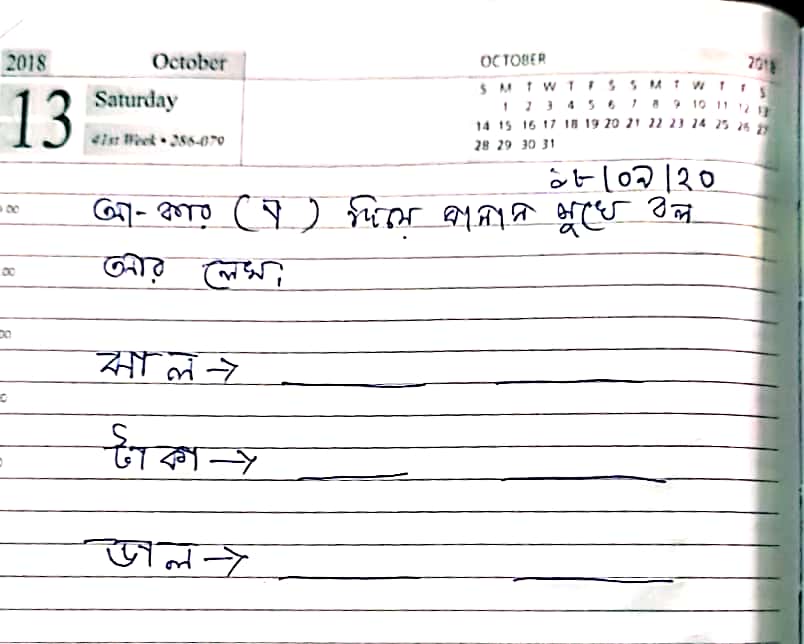 2018 October
13 Saturday
41st Week • 286-079
OCTOBER 2018
S M T W T F S S M T W T F S
1 2 3 4 5 6 7 8 9 10 11 12 13
14 15 16 17 18 19 20 21 22 23 24 25 26 27
28 29 30 31
১৮|০৯|২০
আ-কার (া) দিয়ে বানান মুখে বল
আর লেখ।
ঝাল →
টাকা →
ডাল →